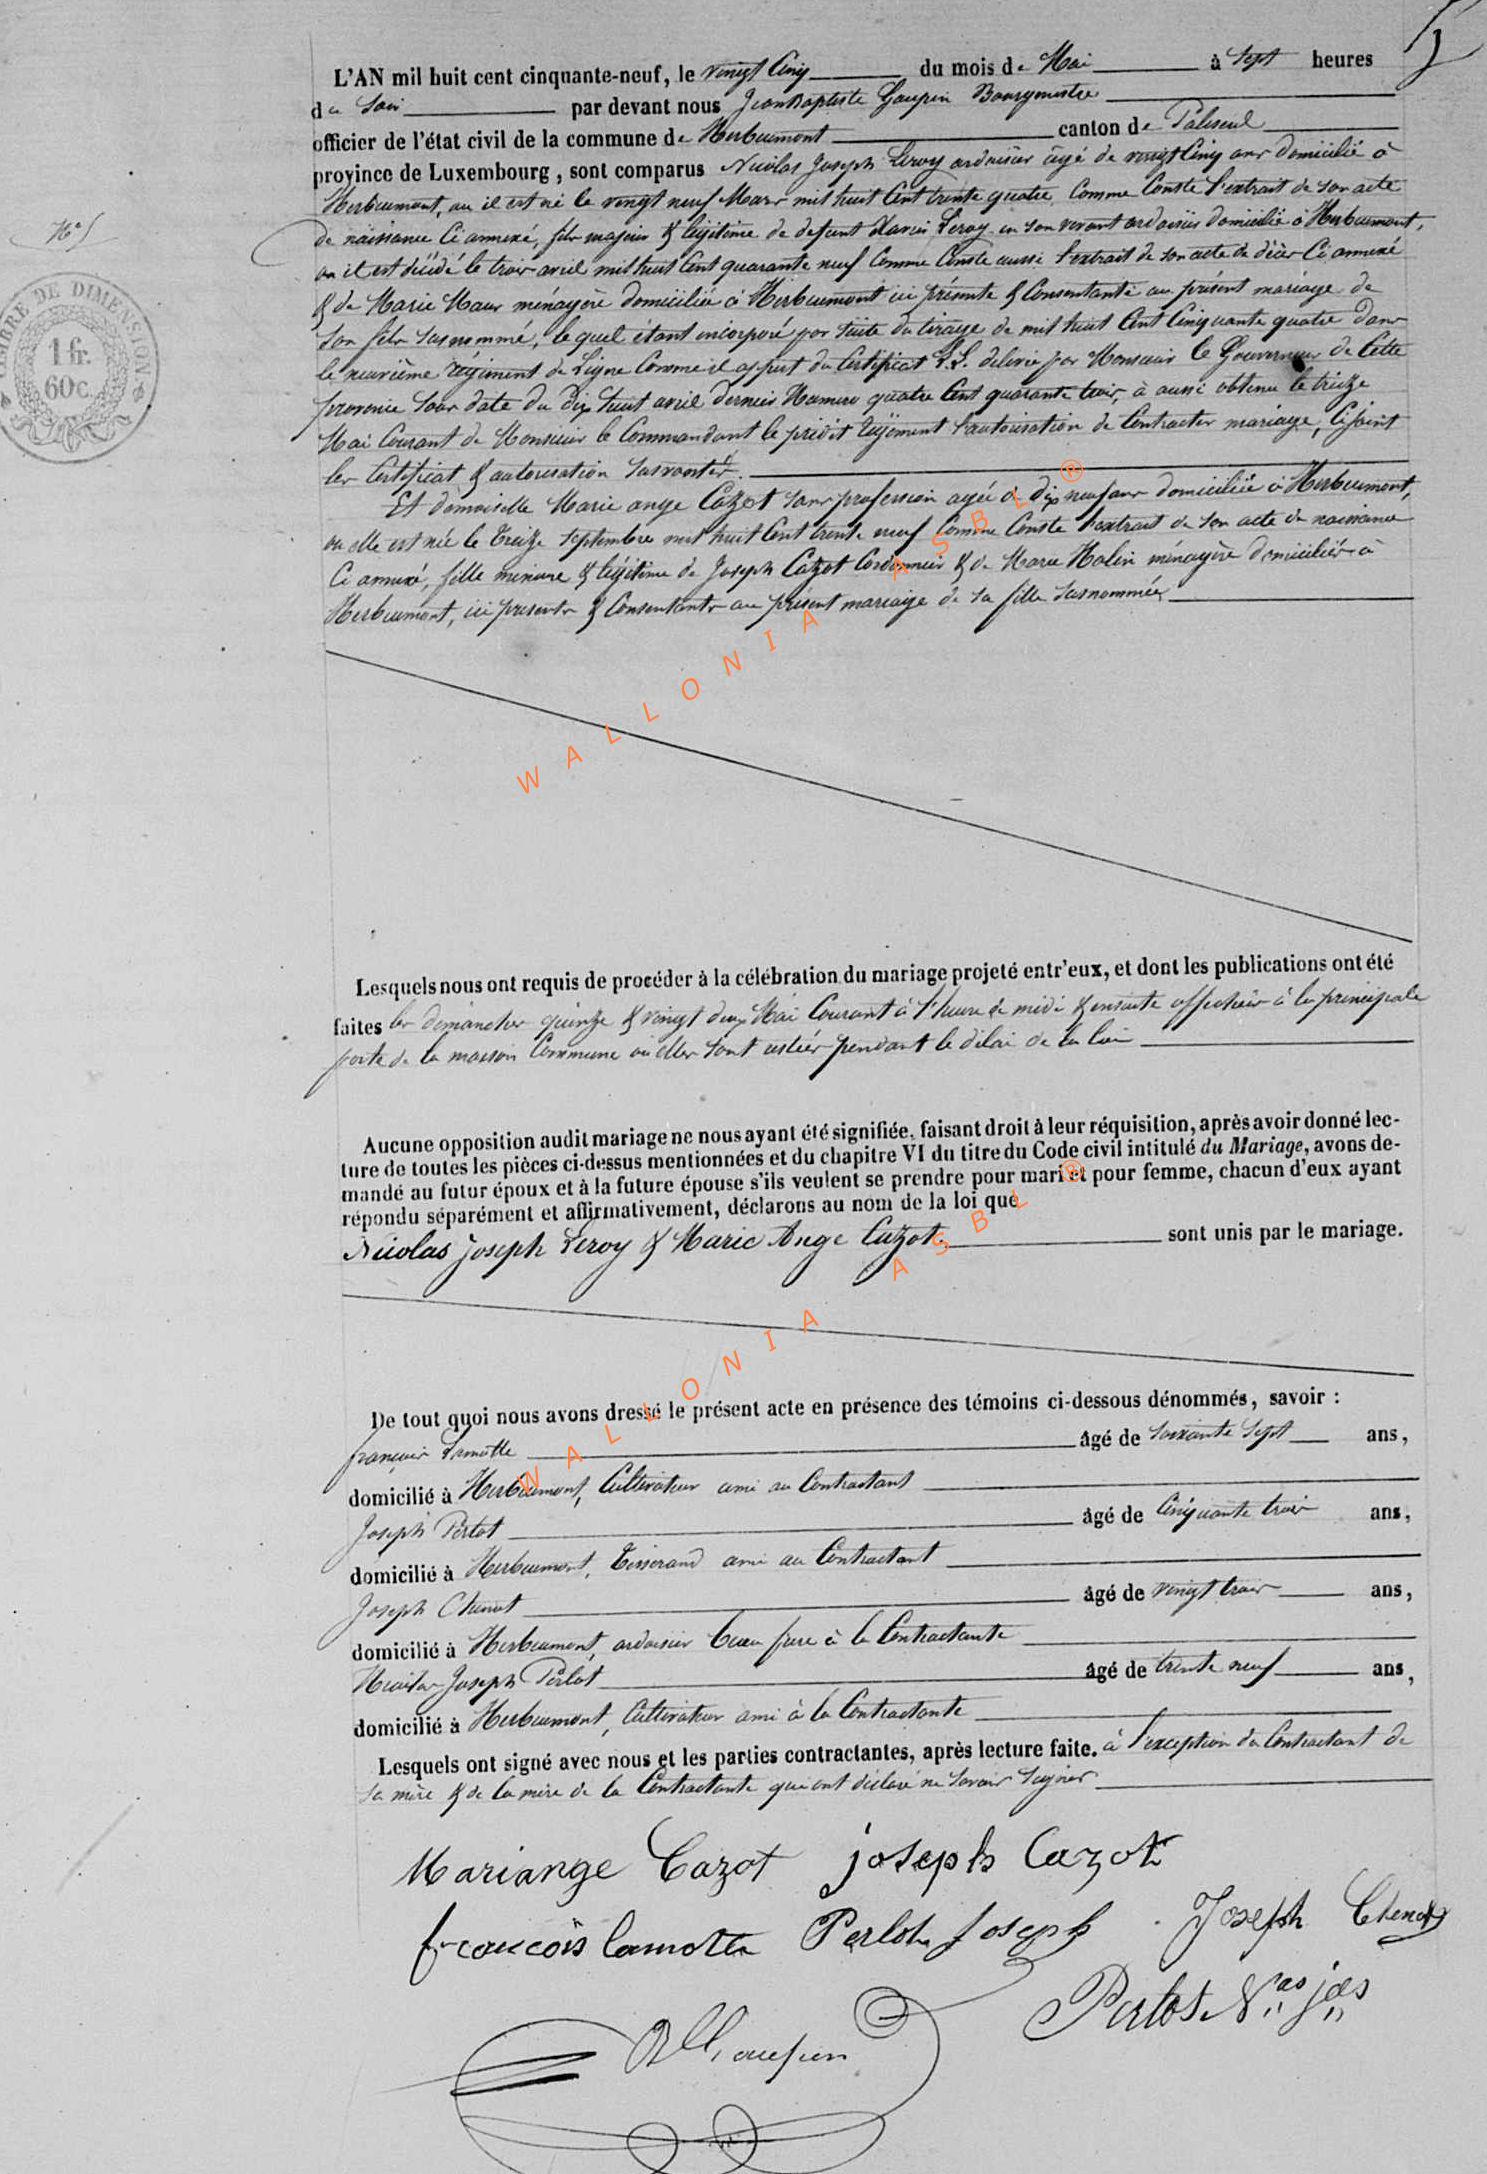 5
L'AN mil huit cent cinquante-neuf, le vingt Cinq du mois de Mai à Sept heures
du Soir par devant nous Jean Baptiste Goupin Bourgmestre
officier de l'état civil de la commune de Herbeumont canton de Paliseul
province de Luxembourg, sont comparus Nicolas Joseph Leroy ardoisier âgé de vingt Cinq ans domicilié à
Herbeumont, ou il est né le vingt neuf Mars mil huit Cent trente quatre, Comme Conste l'extrait de son acte
de naissance Ci annexé, fils majeur & légitime de defunt Xavier Leroy en son vivant ardoisier domicilié à Herbeumont,
ou il est décédé le trois avril mil huit Cent quarante neuf Comme Conste aussi l'extrait de son acte de décès Ci annexé
& de Marie Maux ménagère domiciliée à Herbeumont ici présente & Consentante au présent mariage de
son fils susnommé, lequel étant incorporé par suite du tirage de mil huit Cent Cinquante quatre dans
le neuvième régiment de Ligne Comme il appert du Certificat L.L. delivré par Monsieur le Gouverneur de Cette
province sous date du dix huit avril dernier Numero quatre Cent quarante trois, à aussi obtenu le treize
Mai Courant de Monsieur le Commandant le prédit régiment l'autorisation de Contracter mariage, Ci joint
les Certificat & autorisation susvantés.
Et demoiselle Marie ange Cazot sans profession agée de dix neuf ans domiciliée à Herbeumont,
ou elle est née le Treize septembre mil huit Cent trente neuf Comme Conste l'extrait de son acte de naissance
Ci annexé, fille mineure & légitime de Joseph Cazot Cordonnier & de Marie Kalin ménagère domiciliés à
Herbeumont, ici presents & Consentants au présent mariage de sa fille susnommée
N° 5
TIMBRE DE DIMENSION
1 fr.
60 c.
WALLONIA ASBL ®
Lesquels nous ont requis de procéder à la célébration du mariage projeté entr'eux, et dont les publications ont été
faites les dimanches quinze & vingt deux Mai Courant à l'heure de midi & ensuite affichées à la principale
porte de la maison Commune où elles sont restées pendant le délai de la loi
Aucune opposition audit mariage ne nous ayant été signifiée, faisant droit à leur réquisition, après avoir donné lec-
ture de toutes les pièces ci-dessus mentionnées et du chapitre VI du titre du Code civil intitulé du Mariage, avons de-
mandé au futur époux et à la future épouse s'ils veulent se prendre pour mari et pour femme, chacun d'eux ayant
répondu séparément et affirmativement, déclarons au nom de la loi que
Nicolas Joseph Leroy & Marie Ange Cazot. sont unis par le mariage.
WALLONIA ASBL ®
De tout quoi nous avons dressé le présent acte en présence des témoins ci-dessous dénommés, savoir :
françois Lamotte âgé de soixante sept ans,
domicilié à Herbeumont, Cultivateur ami au Contractant
Joseph Perlot âgé de Cinquante trois ans,
domicilié à Herbeumont, Tisserand ami au Contractant
Joseph Chenot âgé de vingt trois ans,
domicilié à Herbeumont, ardoisier beau frere à la Contractante
Nicolas Joseph Perlot âgé de trente neuf ans,
domicilié à Herbeumont, Cultivateur ami à la Contractante
Lesquels ont signé avec nous et les parties contractantes, après lecture faite. à l'exception du Contractant de
sa mère & de la mère de la Contractante qui ont déclaré ne savoir signer
Mariange Cazot joseph Cazot
francois lamotte Perlot Joseph Joseph Chenot
Perlot Nas jos